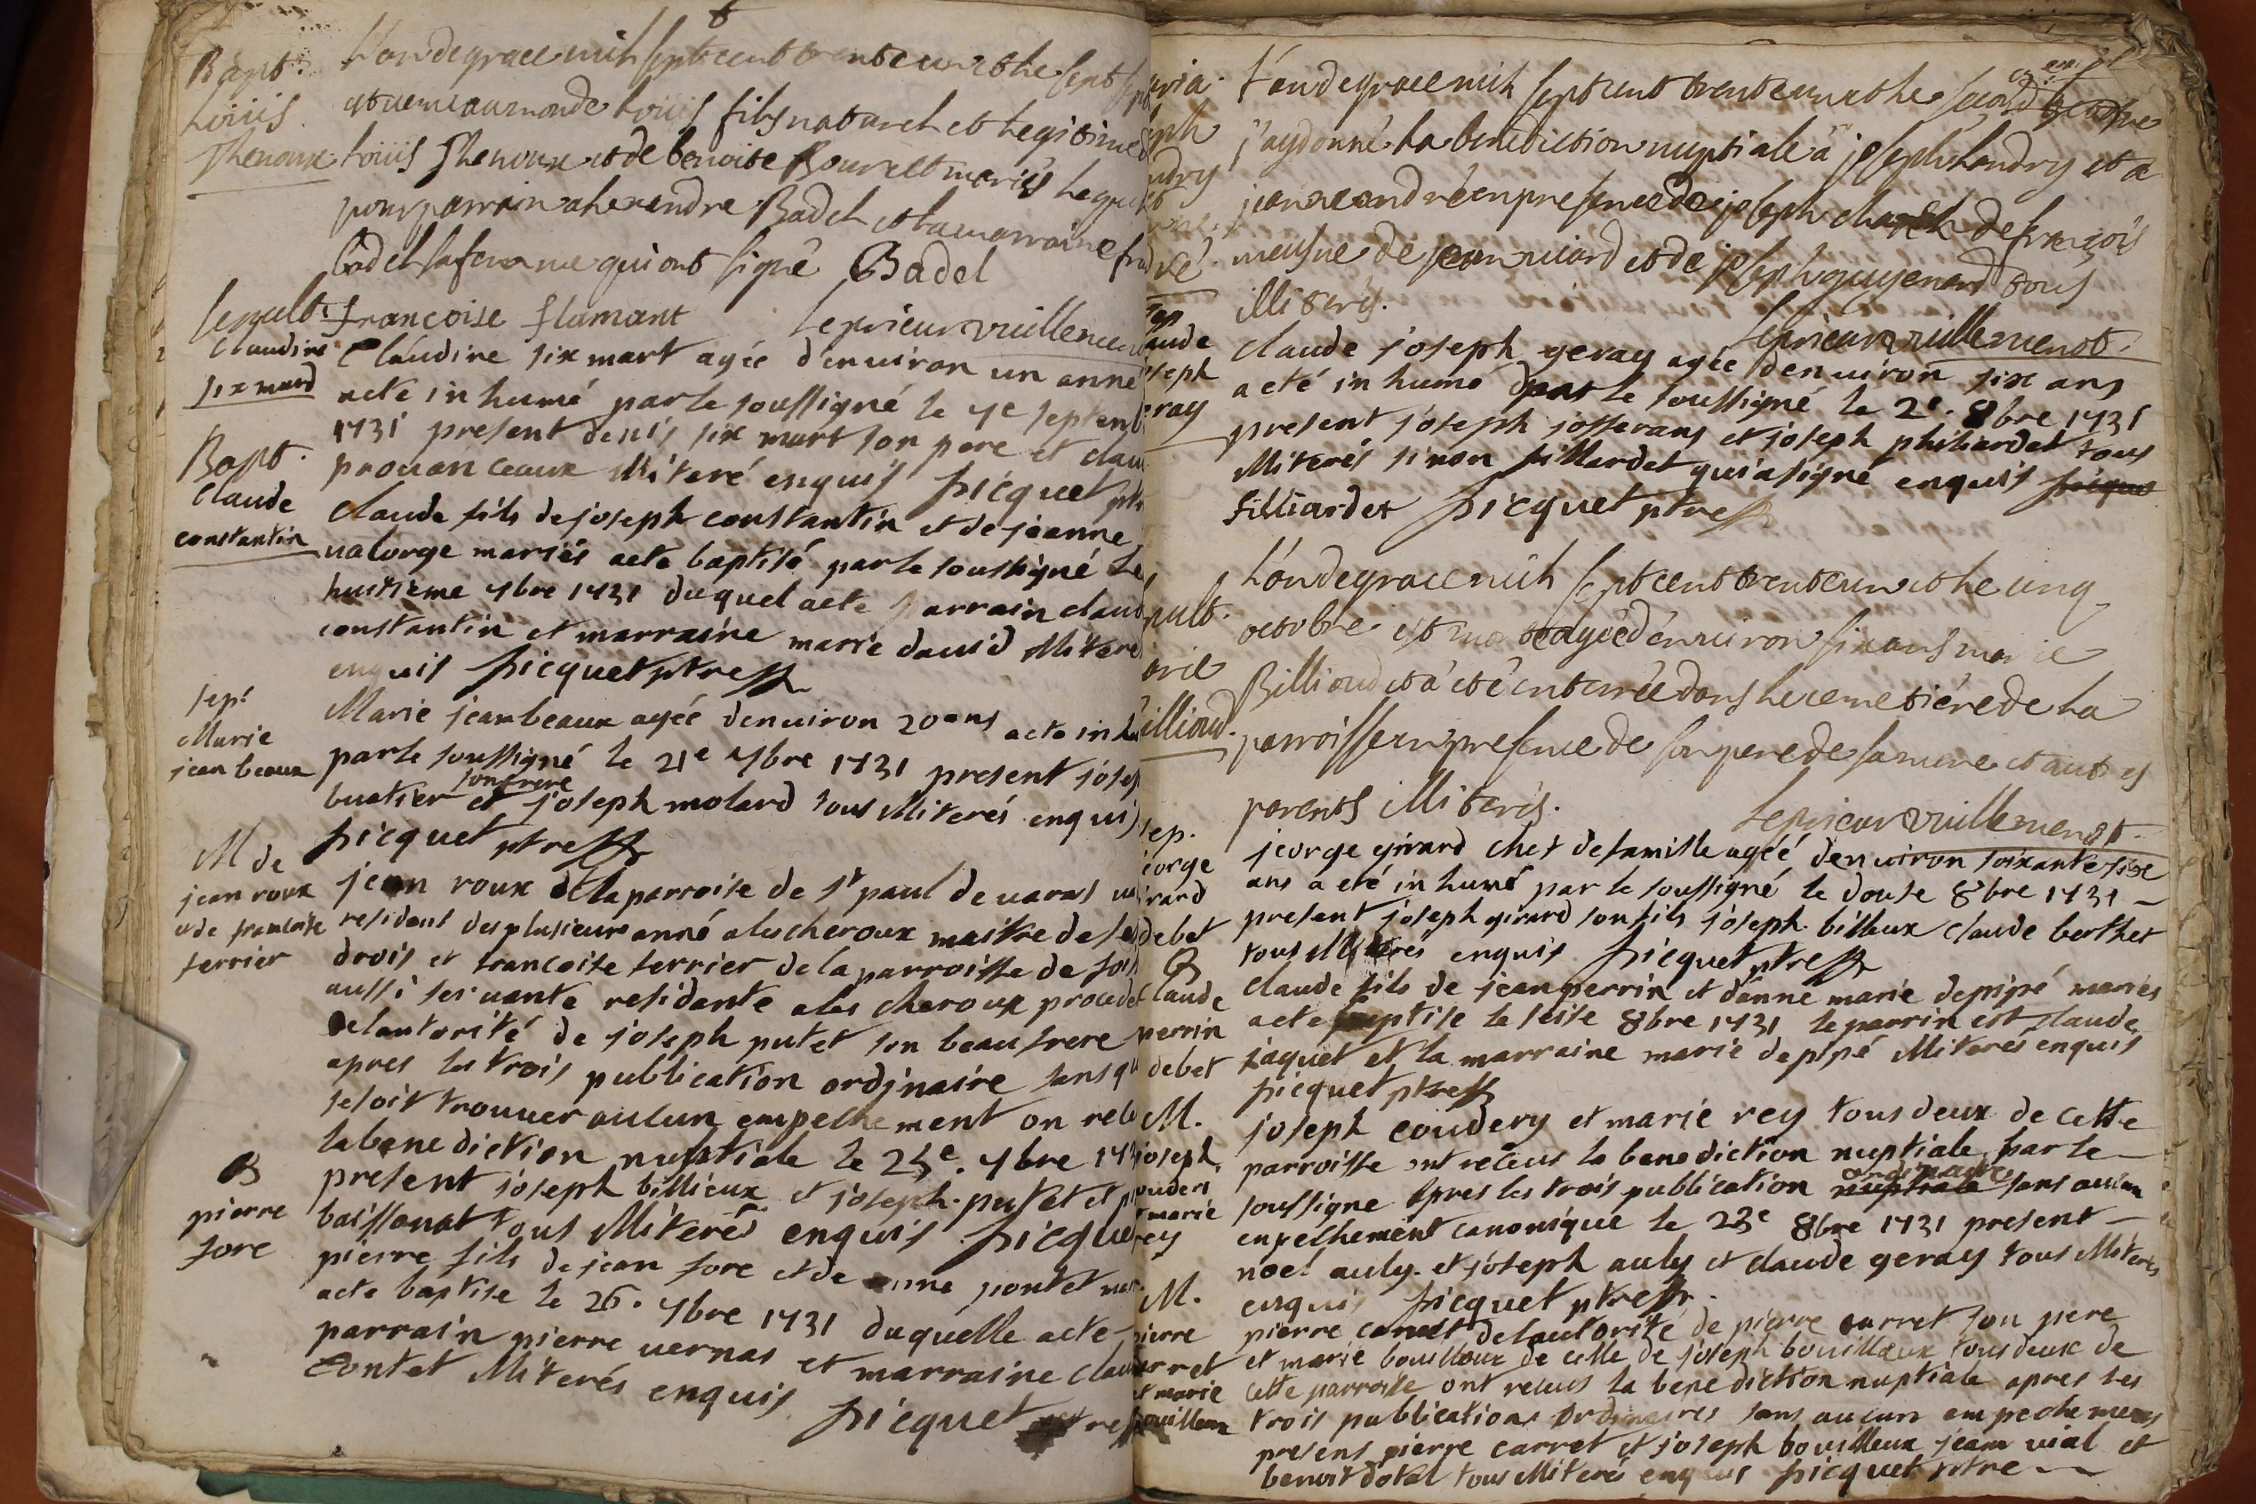 Bapt.
Loüis
Thenoux
L'an de grace mil sept cent trente un et le sept sept
est venu au monde Loüis fils naturel et legitime d
loüis Thenoux et de benoite Bourelt mariés lequel
pour parrain alexandre Badel et la marraine
badel sa femme qui ont signé Badel
françoise flamant le prieur vuillemenot
sepult.
Claudine
sixmard
Claudine six mart agée d'enuiron un anné
acte in humé par le soussigné le 7e septemb
1731 present denis six mart son pere et clau
prouanceaux illiteré enquis picquet ptr
Bapt.
Claude
constantin
Claude fils de joseph constantin et de jeanne
ualorge mariés acte baptisé par le soussigné le
huitieme 7bre 1731 duquel acte parrain claud
constantin et marraine marie dauid illitere
enquis picquet ptre
sept
Marie
jean beaux
Marie jeanbeaux agée denuiron 20 ans acte in hu
par le soussigné le 21e 7bre 1731 present josep
buatier et son frere joseph molard tous illiterés enquis
picquet ptre
M de
jean roux
et de francoise
terrier
jean roux de la parroise de st paul de uaras
residant des plusieur anné a les cheroux maitre de
drois et francoise terrier de la parroisse de
aussi seruante residante a les cheroux procede
de lautorité de joseph putet son beau frere
apres les trois publication ordjnaire sans qu
se soit trouuer aulcun empeschement on rec
la bene diction nuptiale le 25e. 7bre 173
present joseph billieux et joseph putet et
baissonat tous illiterés enquis picque
B
pierre
fore
pierre fils de jean fore et de anne pontet mar
acte baptise le 26. 7bre 1731 duquelle acte
parrain pierre uernas et marraine clau
Contet illiterés enquis picquet ptre
L'an de grace mil sept cent trente un et le second octobre
j'ay donné la benediction nuptiale a joseph Landry et a
jeanne andré en presence de joseph de françois
meusne de jean micard et de joseph guyenard tous
illiterés.
le prieur vuillemenot.
aude
oseph
eray
claude joseph geray agée denuiron six ans
a eté in humé par le soussigné le 2e. 8bre 1731
present joseph josserans et joseph philiardet tous
illiterés sinon filliardet qui a signé enquis picque
Filliardet picquet ptre
L'an de grace mil sept cent trente un et le cinq
octobre est morte agée d'enuiron six ans marie
Billioud et a eté enterrée dans le cemetiére de la
parroisse en presence de son pere de sa mere et autres
parents illiterés.
le prieur vuillemenot.
sep.
eorge
irard
debet
jeorge girard chef de famille agéé denuiron soixante six
ans a eté in humé par le soussigné le douse 8bre 1731
present joseph girard son fils joseph billeux claude berthet
tous illiterés enquis picquet ptre
B
Claude
perrin
debet
claude fils de jean perrin et danne marie depipé mariés
acte baptise le seise 8bre 1731 le parrin est claude
jaquet et la marraine marie depipé illiterés enquis
picquet ptre
M.
joseph
ouderi
marie
rey
joseph coudery et marie rey tous deux de cette
parroisse ont receus la benediction nuptiale par le
soussigne apres les trois publication nuptiale ordinaire sans aucun
enpelhemént canonique le 23e 8bre 1731 present
noel auly. et joseph auly et claude geray tous illiterés
enquis picquet ptre
M.
pierre
arret
et marie
bouilleux
pierre carret de lautorité de pierre carret son pere
et marie bouilloux de celle de joseph bouilloux tous deux de
cette parroise ont receus la bene diction nuptiale apres les
trois publications ordinaires sans aucun empechemens
presens pierre carret et joseph bouilleux jean uial et
benoit dotal tous illiterés enquis picquet ptre